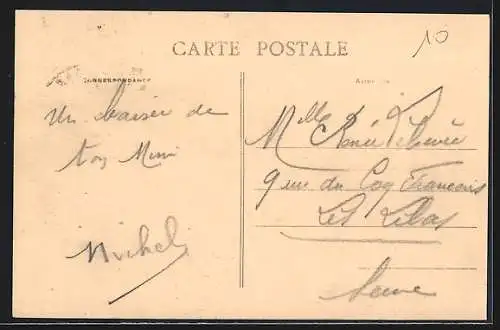 CARTE POSTALE
10
CORRESPONDANCE
Un baiser de
ton Mimi
Michel
Mlle Renée
9 rue du Coq Francais
Les Lilas
Seine